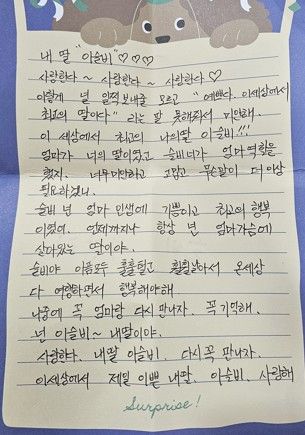 내 딸 "아슬비" ♡♡♡
사랑한다 ~ 사랑한다 ~ 사랑한다 ♡
이렇게 널 일찍 보내줄 모르고 "예쁘다. 이세상에서
최고의 딸이다" 라는 말 못해줘서 미안해.
이 세상에서 최고의 나의딸 아슬비!!!
엄마가 너의 딸이었고 슬비너가 엄마 역할을
했지. 너무미안하고 고맙고 무슨말이 더 이상
필요하겠니.
슬비 넌 엄마 인생에 기쁨이고 최고의 행복
이였어. 언제까지나 항상 넌 엄마가슴에
살아있는 딸이야.
슬비야 아픔모두 훌훌털고 훨훨날아서 온세상
다 여행하면서 행복해야해
나중에 꼭 엄마랑 다시만나자. 꼭 기억해.
넌 아슬비~ 내딸이야.
사랑한다. 내딸 아슬비. 다시꼭 만나자.
이세상에서 제일 이쁜 내딸. 아슬비. 사랑해
Surprise!